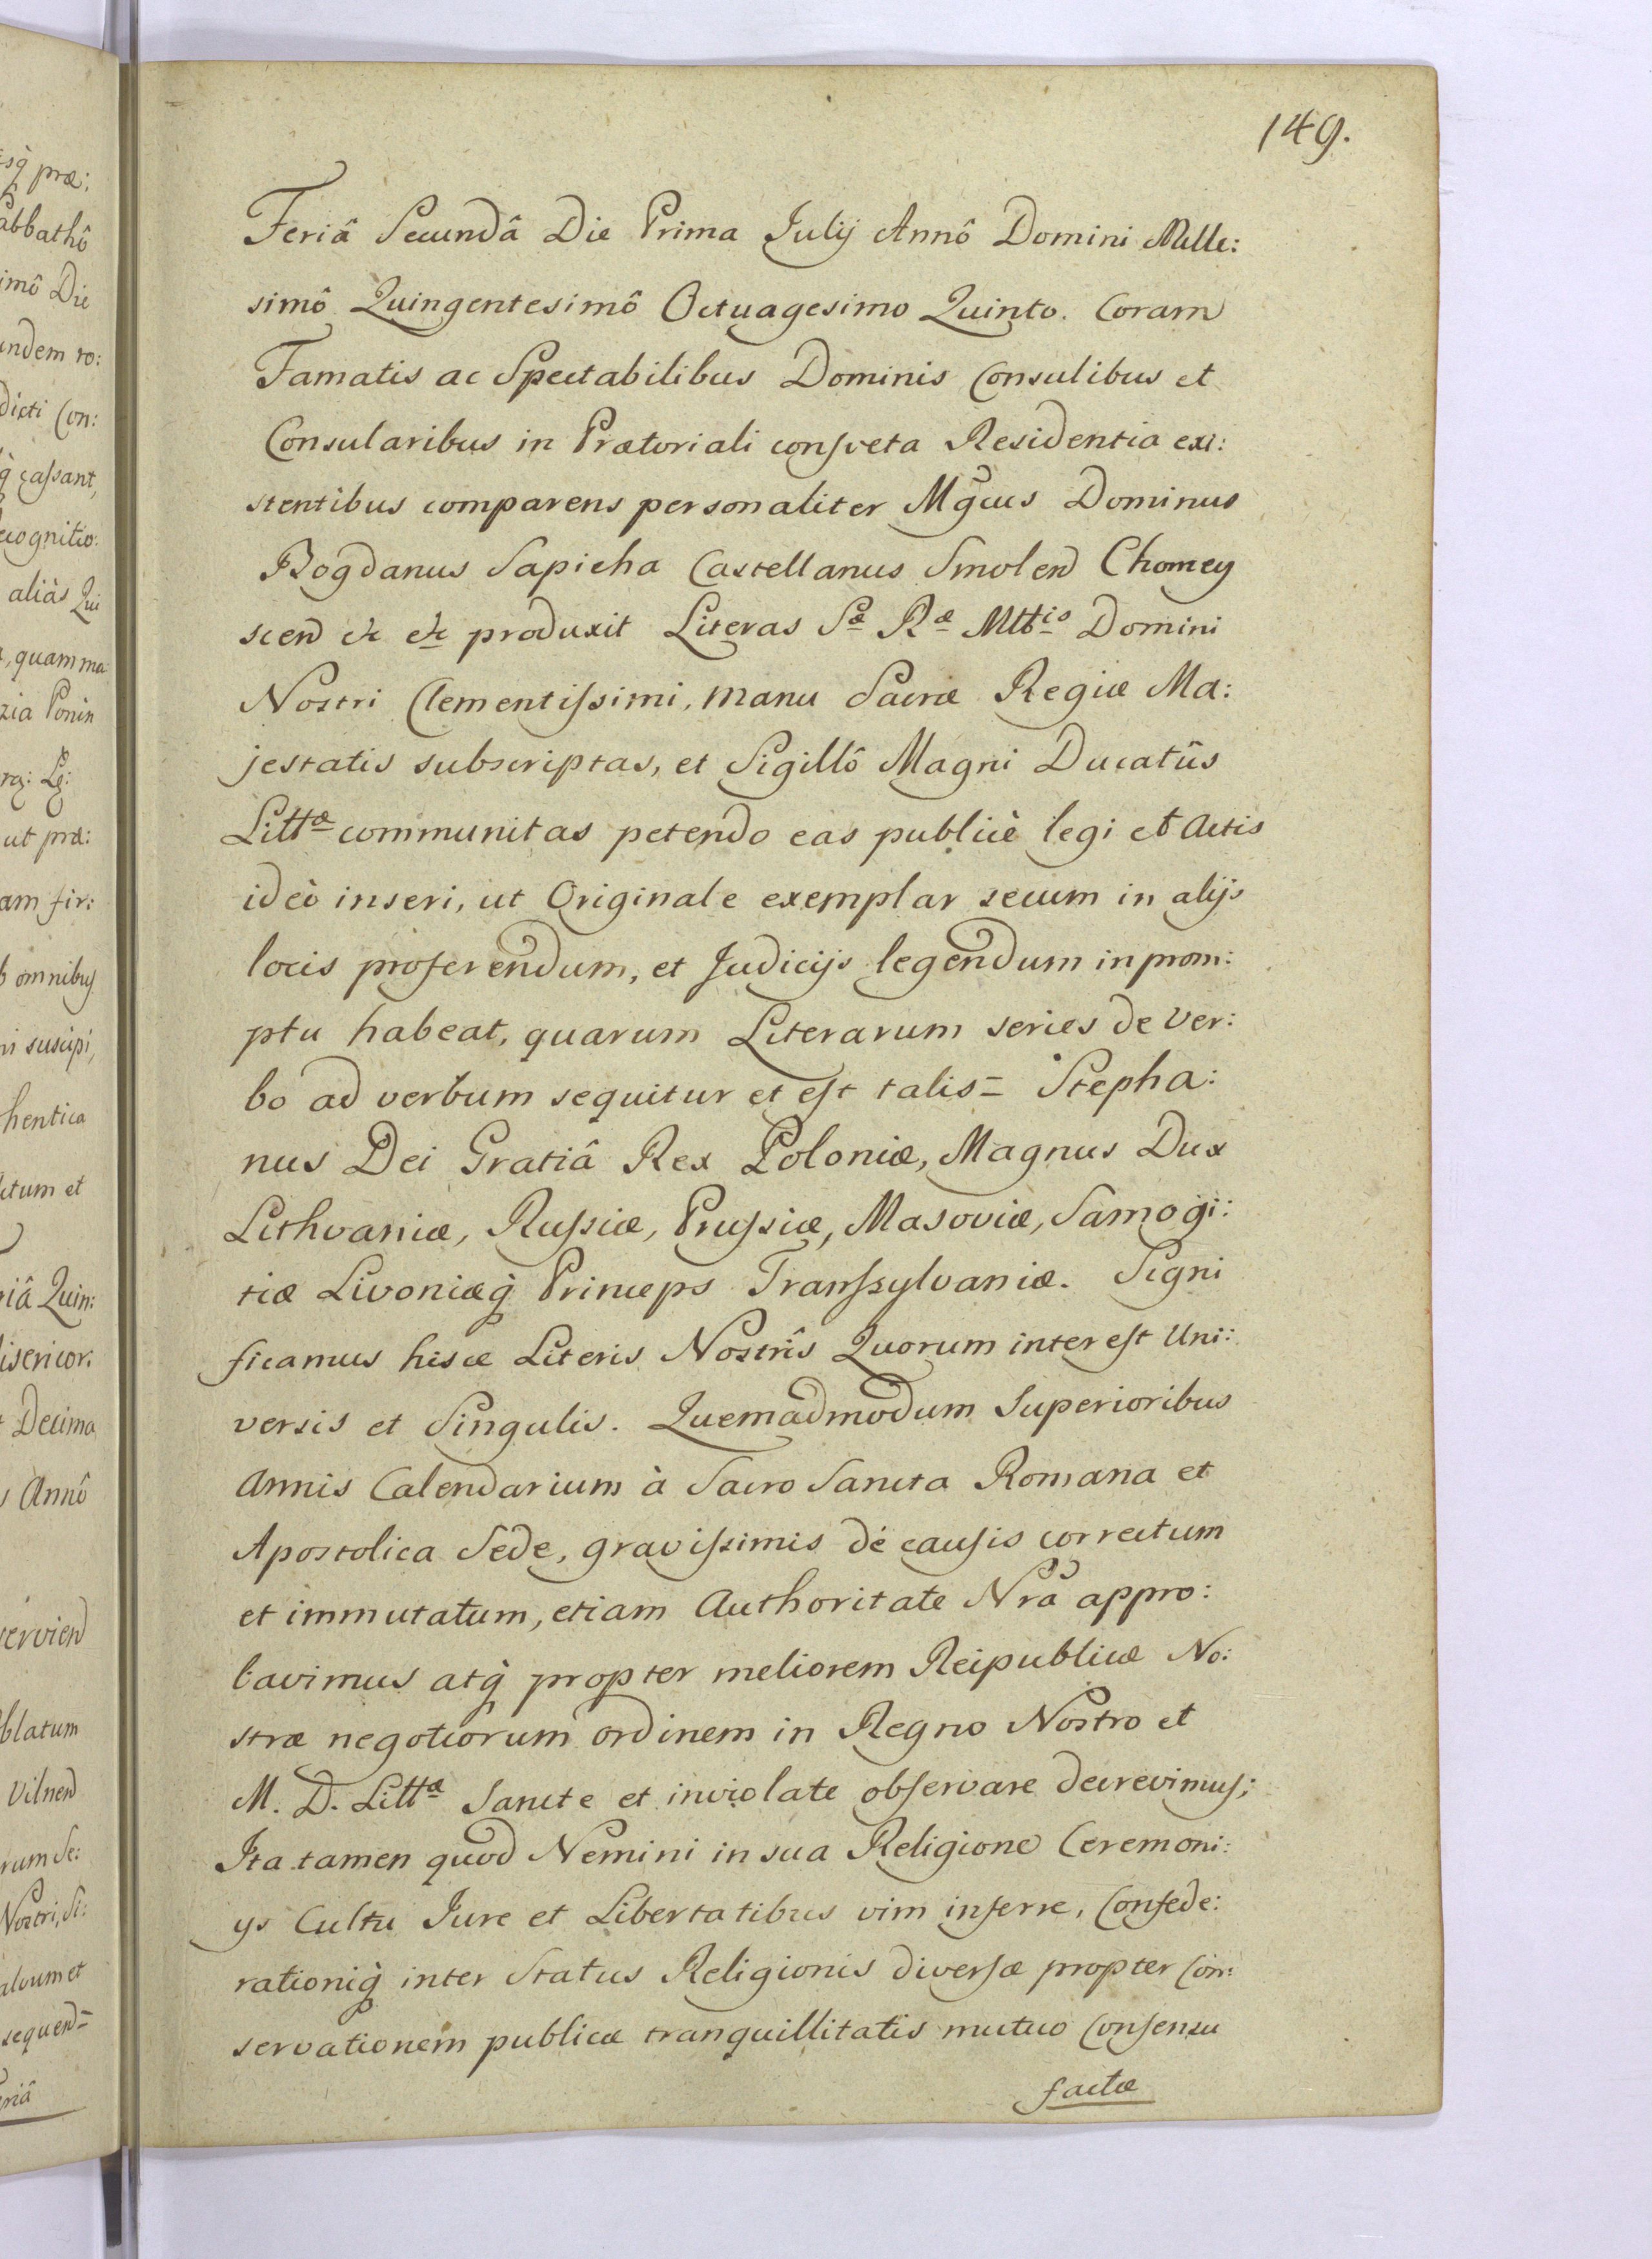 149.
Feriâ Secundâ Die Prima Julij Annô Domini Mille:
simô Quingentesimô Octuagesimo Quinto. Coram
Famatis ac Spectabilibus Dominis Consulibus et
Consularibus in Prætoriali consveta Residentia exi:
stentibus comparens personaliter Mg̃cus Dominus
Bogdanus Sapieha Castellanus Smolend Chomey
scend &c &c produxit Literas Sæ Ræ Mttis Domini
Nostri Clementissimi, manu Sacræ Regiæ Ma:
jestatis subscriptas, et Sigillô Magni Ducatûs
Littæ communitas petendo eas publicè legi et Actis
ideò inseri, ut Originale exemplar secum in alijs
locis proferendum, et Judicijs legendum in prom:
ptu habeat, quarum Literarum series de ver:
bo ad verbum sequitur et est talis= Stepha:
nus Dei Gratiâ Rex Poloniæ, Magnus Dux
Lithvaniæ, Russiæ, Prussiæ, Masoviæ, Samogi:
tiæ Livoniæq̀ Princeps Transsylvaniæ. Signi
ficamus hisce Literis Nostrîs Quorum interest Uni:
versis et Singulis. Quemadmodum Superioribus
Annis Calendarium à Sacro Sancta Romana et
Apostolica Sede, gravissimis dè causis correctum
et immutatum, etiam Authoritate Nrã appro:
bavimus atq̀ propter meliorem Reipublicæ No:
stræ negotiorum ordinem in Regno Nostro et
M. D. Littæ Sancte et inviolate observare decrevimus;
Ita tamen quod Nemini in sua Religione Ceremoni:
ys Cultu Jure et Libertatibus vim inferre, Confede:
rationiq̀ inter Status Religionis diversæ propter Con:
servationem publicæ tranquillitatis mutuo Consensu
factæ
esq̀ præ:
abbathô
imô Die
undem ro:
dicti Con:
q̀ cassant,
ecognitio:
aliàs Qui
, quam ma
zia Ponin
ut præ:
am fir:
b omnibus
ni suscipi,
hentica
ctum et
riâ Quin:
isericor:
Decima
s Annô
erviend
blatum
Vilnend
rum Se:
Nostri, Si:
alvum et
sequend=
eriâ